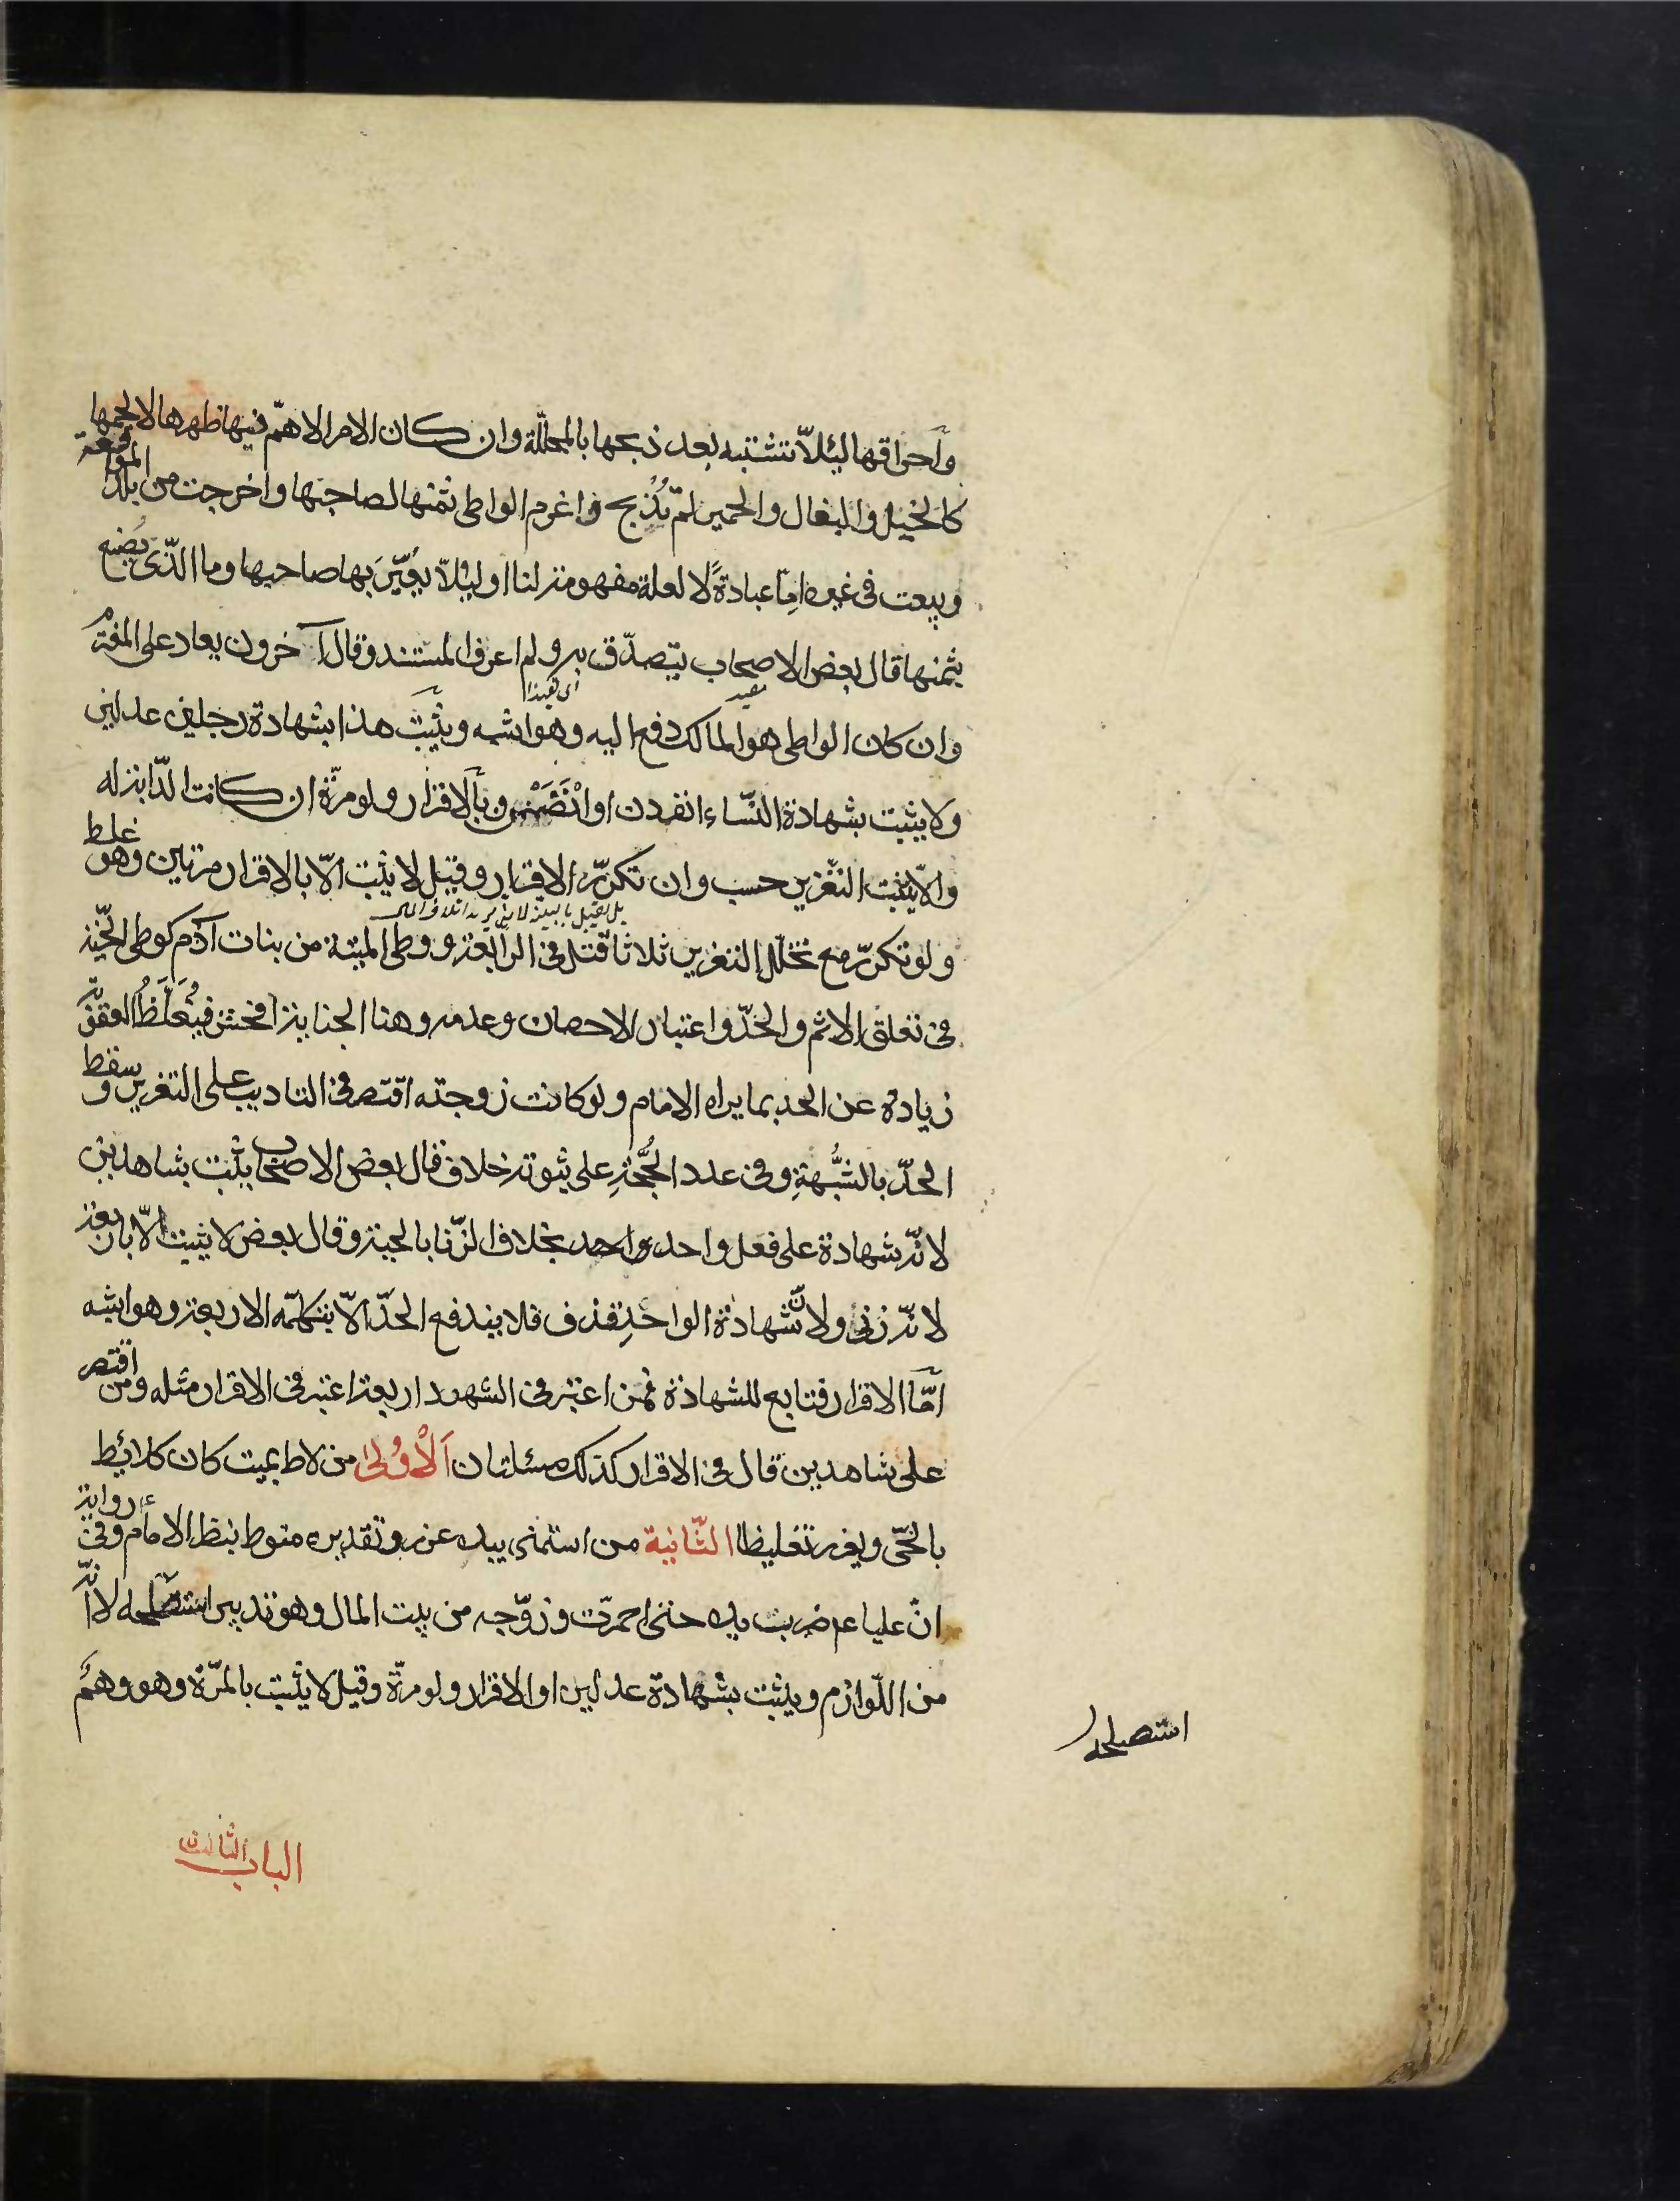 واحراقها لئلا تشتبه بعد ذبحها بالمحللة وان كان الامر الاهم فيها ظهرها لا لحمها
كالخيل والبغال والحمير لم تذبح واغرم الواطى ثمنها لصاحبها واخرجت من بلد المواقعة
وبيعت فى غيره اما عبادة لا لعلة مفهومة لنا او لئلا يعير بها صاحبها وما الذى يصنع
بثمنها قال بعض الاصحاب يتصدق به ولم اعرف المستند وقال آخرون يعاد على المغترم
وان كان الواطى هو المالك دفع اليه وهو اشبه ويثبت هذا بشهادة رجلين عدلين
ولا يثبت بشهادة النساء انفردن او انضممن وبالاقرار ولو مرة ان كانت الدابة له
والا يثبت التعزير حسب وان تكرر الاقرار وقيل لا يثبت الا بالاقرار مرتين وهو غلط
ولو تكرر مع تخلل التعزير ثلاثا قتل فى الرابعة ووطى الميتة من بنات آدم كوطى الحية
فى تعلق الاثم والحد واعتبار الاحصان وعدمه وهنا الجناية افحش فيغلظ العقوبة
زيادة عن الحد بما يراه الامام ولو كانت زوجته اقتصر فى التاديب على التعزير وسقط
الحد بالشبهة وفى عدد الحجة على ثبوته خلاف قال بعض الاصحاب يثبت بشاهدين
لانه شهادة على فعل واحد بخلاف الزنا بالحية وقال بعض لا يثبت الا باربعة
لانه زنى ولان شهادة الواحد قذف فلا يندفع الحد الا بتكملة الاربعة وهو اشبه
اما الاقرار فتابع للشهادة فمن اعتبر فى الشهود اربعة اعتبر فى الاقرار مثله ومن اقتصر
على شاهدين قال فى الاقرار كذلك مسئلتان الاولى من لاط بميت كان كلائط
بالحى ويعزر تغليظا الثانية من استمنى بيده عزر وتقديره منوط بنظر الامام وفى رواية
ان عليا عم ضربت يده حتى احمرت وزوجه من بيت المال وهو تدبير استصلحه لا انه
من اللوازم ويثبت بشهادة عدلين او الاقرار ولو مرة وقيل لا يثبت بالمرة وهو وهم
استصلحه
الباب الثالث